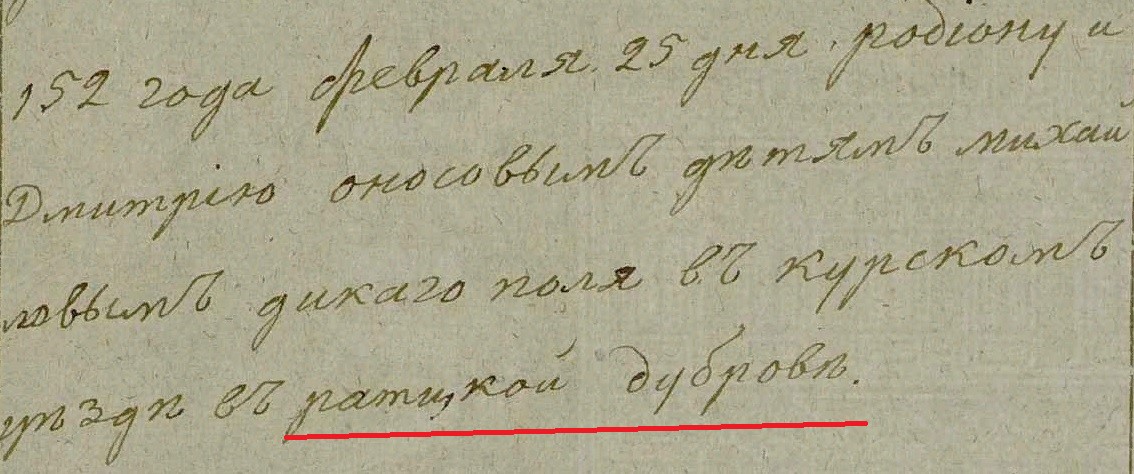 152 года февраля 25 дня родiону и
Дмитрiю оносовымъ дѣтямъ михай
ловымъ дикаго поля въ курскомъ
уѣздѣ въ ратцкой дубровѣ.